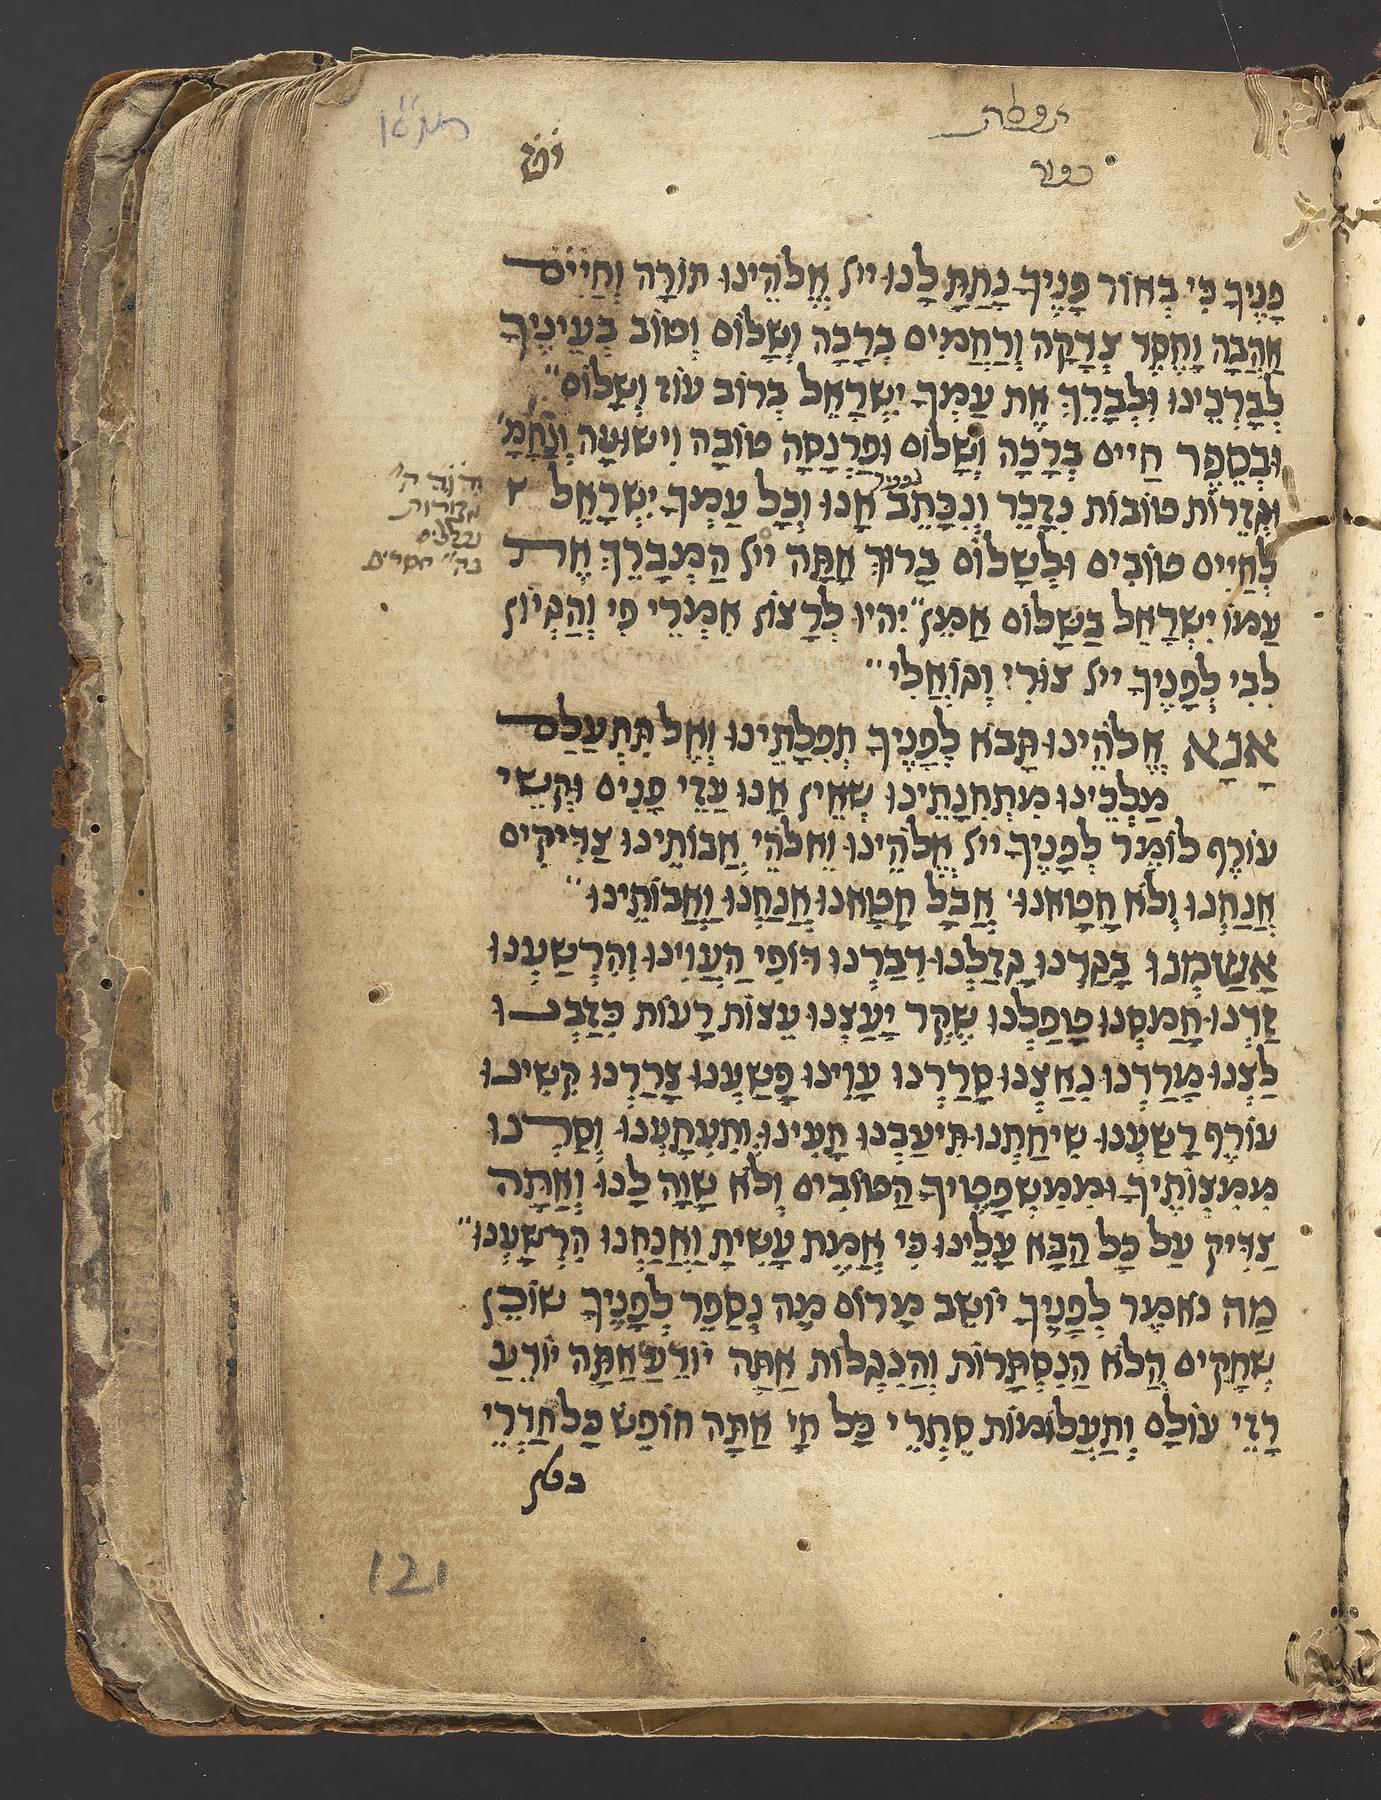 תפלת
כפור
יט
פָנֶיךָ כִּי בְאוֹר פָּנֶיךָ נָתַתָּ לָנוּ ייי אֱלֹהֵינוּ תוֹרָה וְחַיִים
אַהֲבָה וָחֶסֶד צְדָקָה וְרַחֲמִים בְּרָכָה וְשָׁלוֹם וְטוֹב בְּעֵינֶיךָ
לְבָרְכֵינוּ וּלְבָרֵךְ אֶת עַמְךָ יִשְׂרָאֵל בְּרוֹב עוֹז וְשָׁלוֹם״
וּבְסֵפֶר חַיִים בְּרָכָה וְשָׁלוֹם וּפַרְנָסָה טוֹבָה וִישׁוּעָה וְנֶחָמָ׳
וּגְזֵרוֹת טוֹבוֹת נִזָכֵר וְנִכָּתֵב אָנוּ וְכָל עַמְךָ יִשְׂרָאֵל
לְחַיִים טוֹבִים וּלְשָׁלוֹם בָּרוּךְ אַתָּה ייי הַמְבָרֵךְ אֶת
עַמוֹ יִשְׂרָאֵל בַּשָׁלוֹם אָמֵן״ יִהְיוּ לְרָצוֹן אִמְרֵי פִי וְהֶגְיוֹן
לִבִי לְפָנֶיךָ ייי צוּרִי וְגוֹאֲלִי״
אָנָא אֱלֹהֵינוּ תָּבֹא לְפָנֶיךָ תְפִלָתֵינוּ וְאַל תִּתְעַלַם
מַלְכֵּינוּ מִתְחִנָתֵינוּ שְׁאֵין אָנוּ עַזֵי פָנִים וּקְשֵׁי
עוֹרֶף לוֹמַר לְפָנֶיךָ ייי אֱלֹהֵינוּ וֵאלֹהֵי אֲבוֹתֵינוּ צַדִיקִים
אֲנַחְנוּ וְלֹא חָטָאנוּ׳ אֲבָל חָטָאנוּ אֲנַחְנוּ וַאֲבוֹתֵינוּ״
אָשַׁמְנוּ בָּגַדְנוּ גָזַלְנוּ דִבַרְנוּ דוֹפִי הֶעֱוִינוּ וְהִרְשַׁעְנוּ
זַדְנוּ חָמַסְנוּ טָפַלְנוּ שֶׁקֶר יָעַצְנוּ עֵצוֹת רָעוֹת כִּזַבְנוּ
לַצְנוּ מָרַדְנוּ נִאַצְנוּ סָרַרְנוּ עָוִינוּ פָּשַׁעְנוּ צָרַרְנוּ קִשִׁינוּ
עוֹרֶף רָשַׁעְנוּ שִׁיחַתְנוּ תִּיעַבְנוּ תָעִינוּ וְתִעְתָעְנוּ וְסַרְנוּ
מִמִצְוֹתֶיךָ וּמִמִשְׁפָּטֶיךָ הַטוֹבִים וְלֹא שָׁוָה לָנוּ וְאַתָּה
צַדִיק עַל כָּל הַבָּא עָלֵינוּ כִּי אֱמֶת עָשִׂיתָ וַאֲנַחְנוּ הִרְשָׁעְנוּ״
מַה נֹאמַר לְפָנֶיךָ יוֹשֵׁב מָרוֹם מַה נְסַפֵּר לְפָנֶיךָ שׁוֹכֵן
שְׁחָקִים הֲלֹא הַנִסְתָּרוֹת וְהַנִגְלוֹת אַתָּה יוֹדֵעַ אַתָּה יוֹדֵעַ
רָזֵי עוֹלָם וְתַעֲלוּמוֹת סִתְרֵי כָּל חָי אַתָּה חוֹפֵשׂ כָּל חַדְרֵי
בטן
121